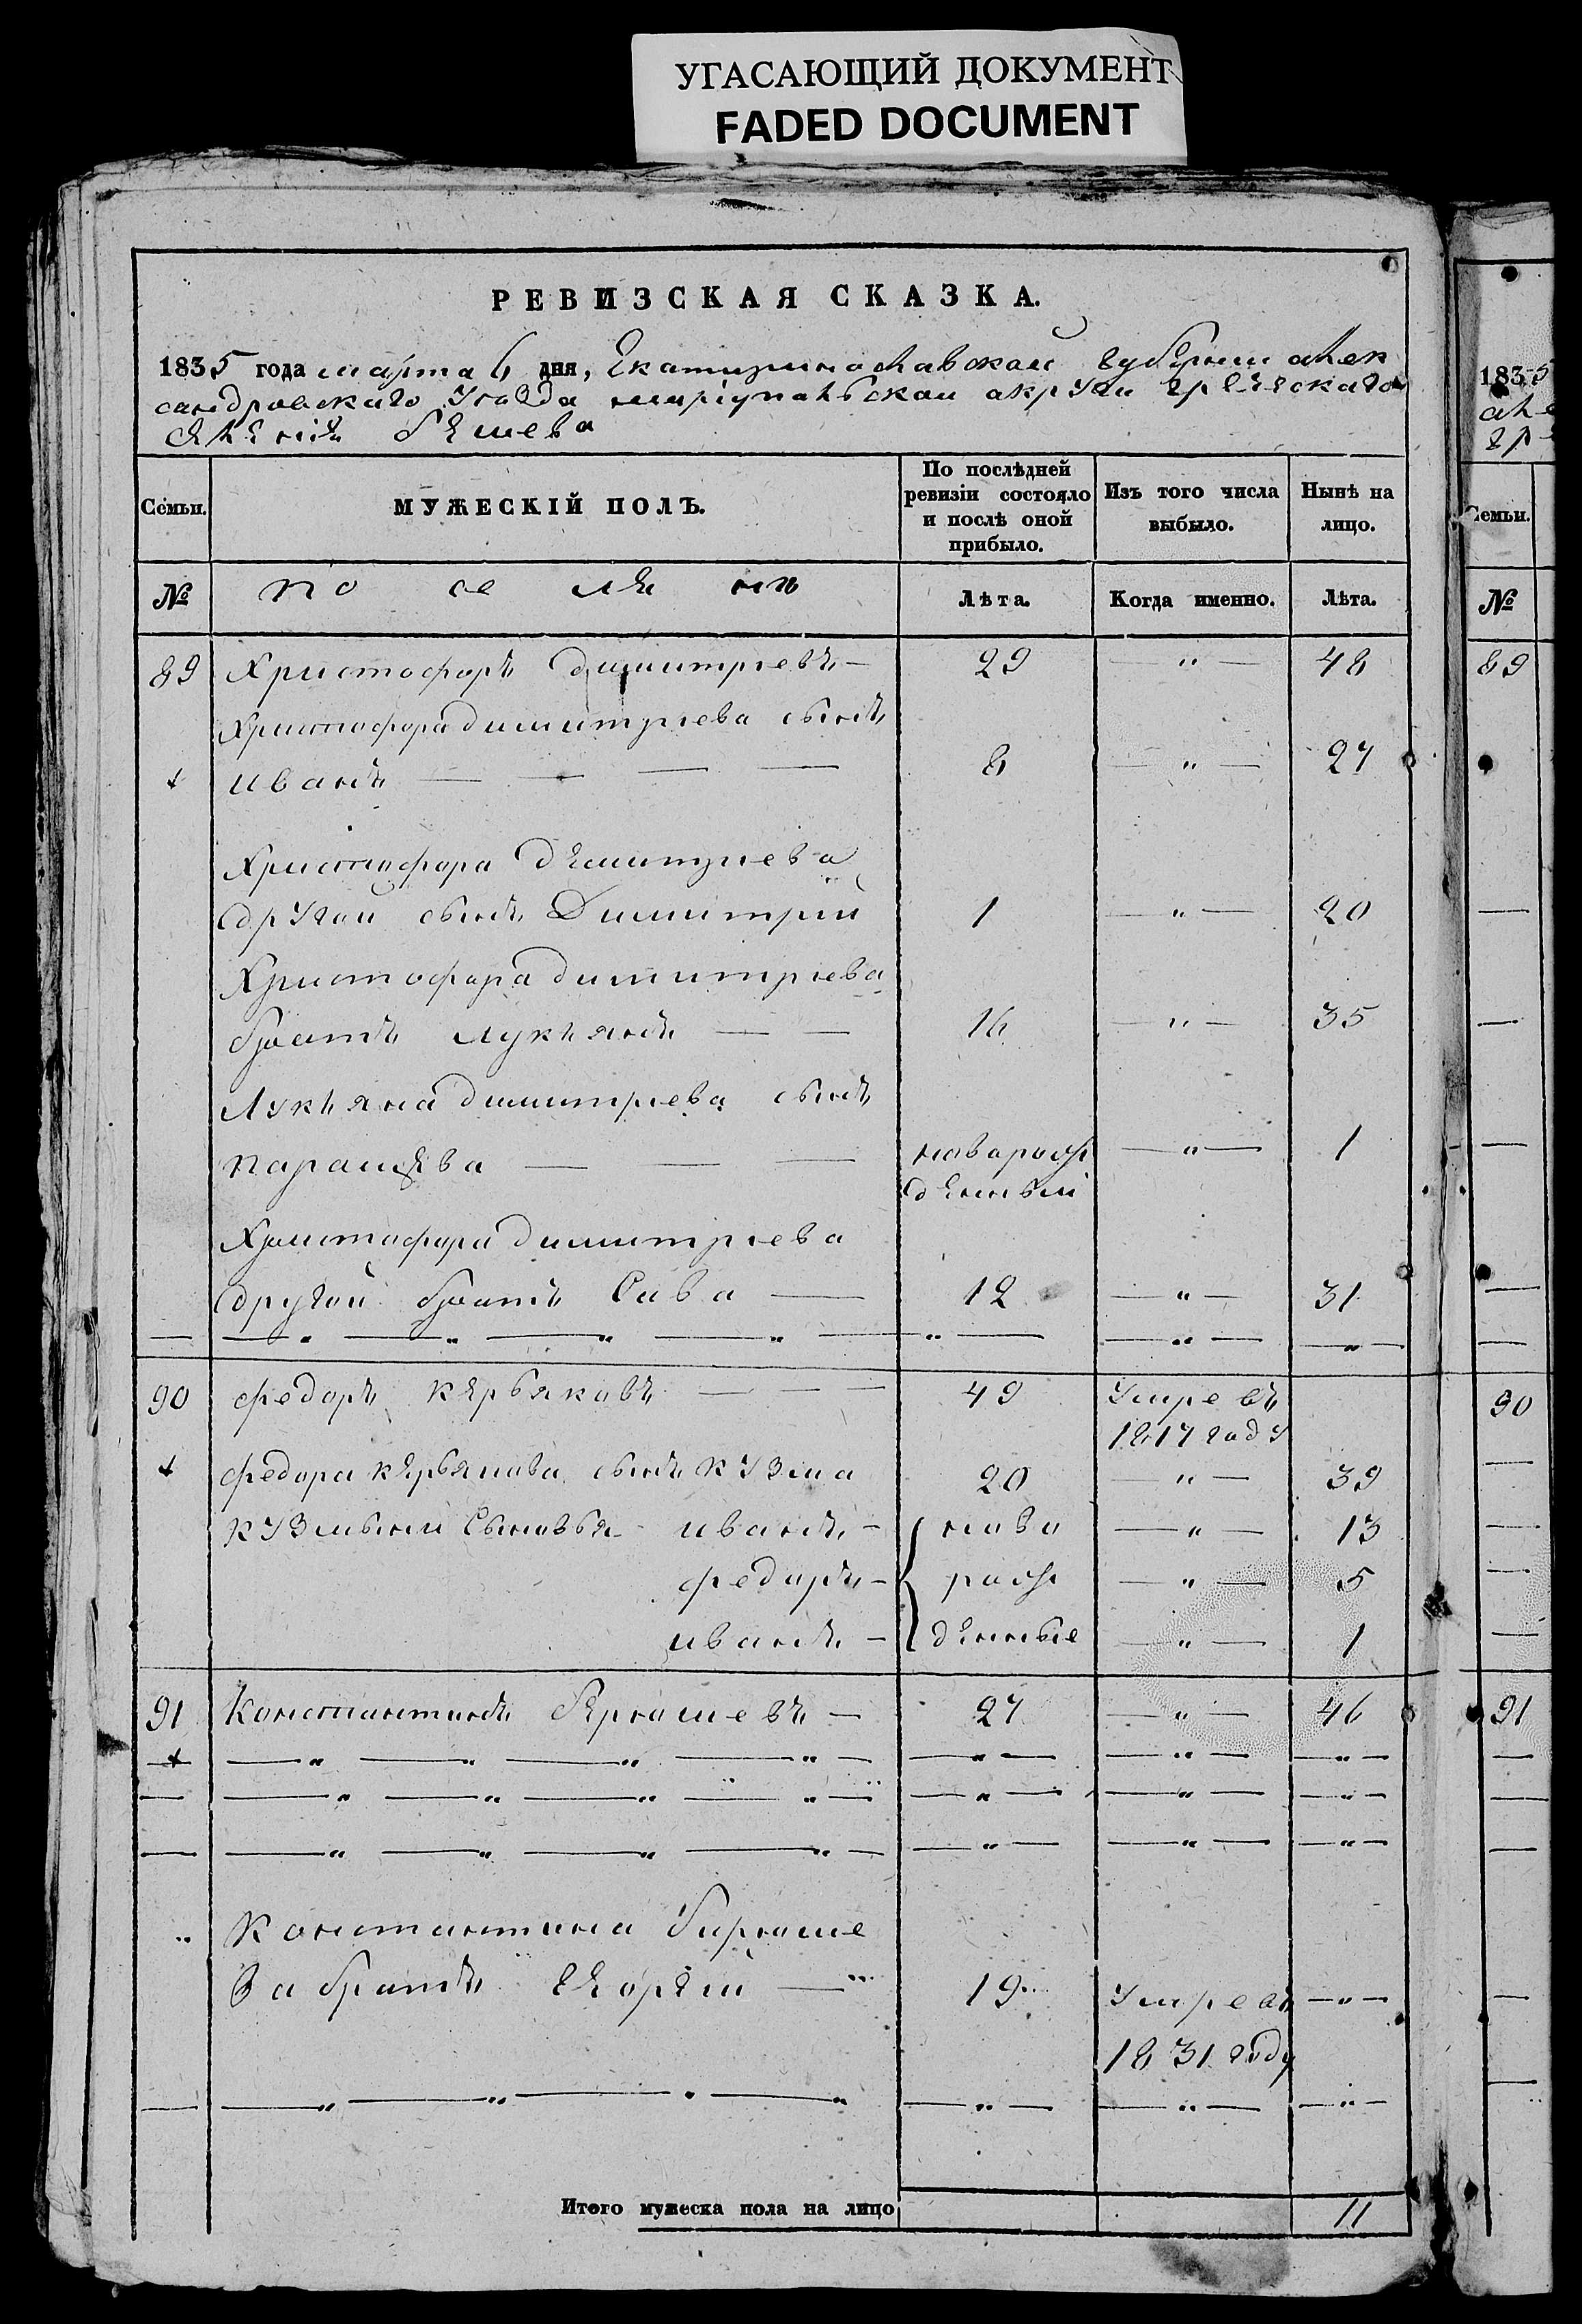 УГАСАЮЩИЙ ДОКУМЕНТ
FADED DOCUMENT
РЕВИЗСКАЯ СКАЗКА.
1835 года марта 6 дня, Екатиринославскай губернии алек
сандровскаго уѣзда мариупальскаи акруги греческаго
селения бешева
Семьи.
МУЖЕСКІЙ ПОЛЪ.
По послѣдней ревизіи состояло и послѣ оной прибыло.
Изъ того числа выбыло.
Нынѣ на лицо.
№ по се ля нъ Лѣта. Когда именно. Лѣта.
89 Христофоръ димитриевъ — 29 — " — 48
Христофора димитриева сынъ
иванъ — — — — 8 — " — 27
Христофора демитриева
другой сынъ Димитрий 1 — " — 20
Христофора димитриева
братъ лукьянъ — — 16 — " — 35
Лукьяна димитриева сынъ
параскева — — — наварож — " — 1
денный
Христофора димитриева
другой братъ Сава — 12 — " — 31
90 федоръ кербяковъ — — — 49 Умре въ
1817 году
федора кербякова сынъ кузма 20 — " — 39
кузмыни Сыновья иванъ — нава — " — 13
федоръ — рож — " — 5
иванъ — денные — " — 1
91 Константинъ бернашевъ — 27 — " — 46
Константина бирнаше
ва братъ егоргий — 19 Умре въ — " —
1831 году
Итого мужеска пола на лицо 11
1835
Семьи.
№
89
90
91